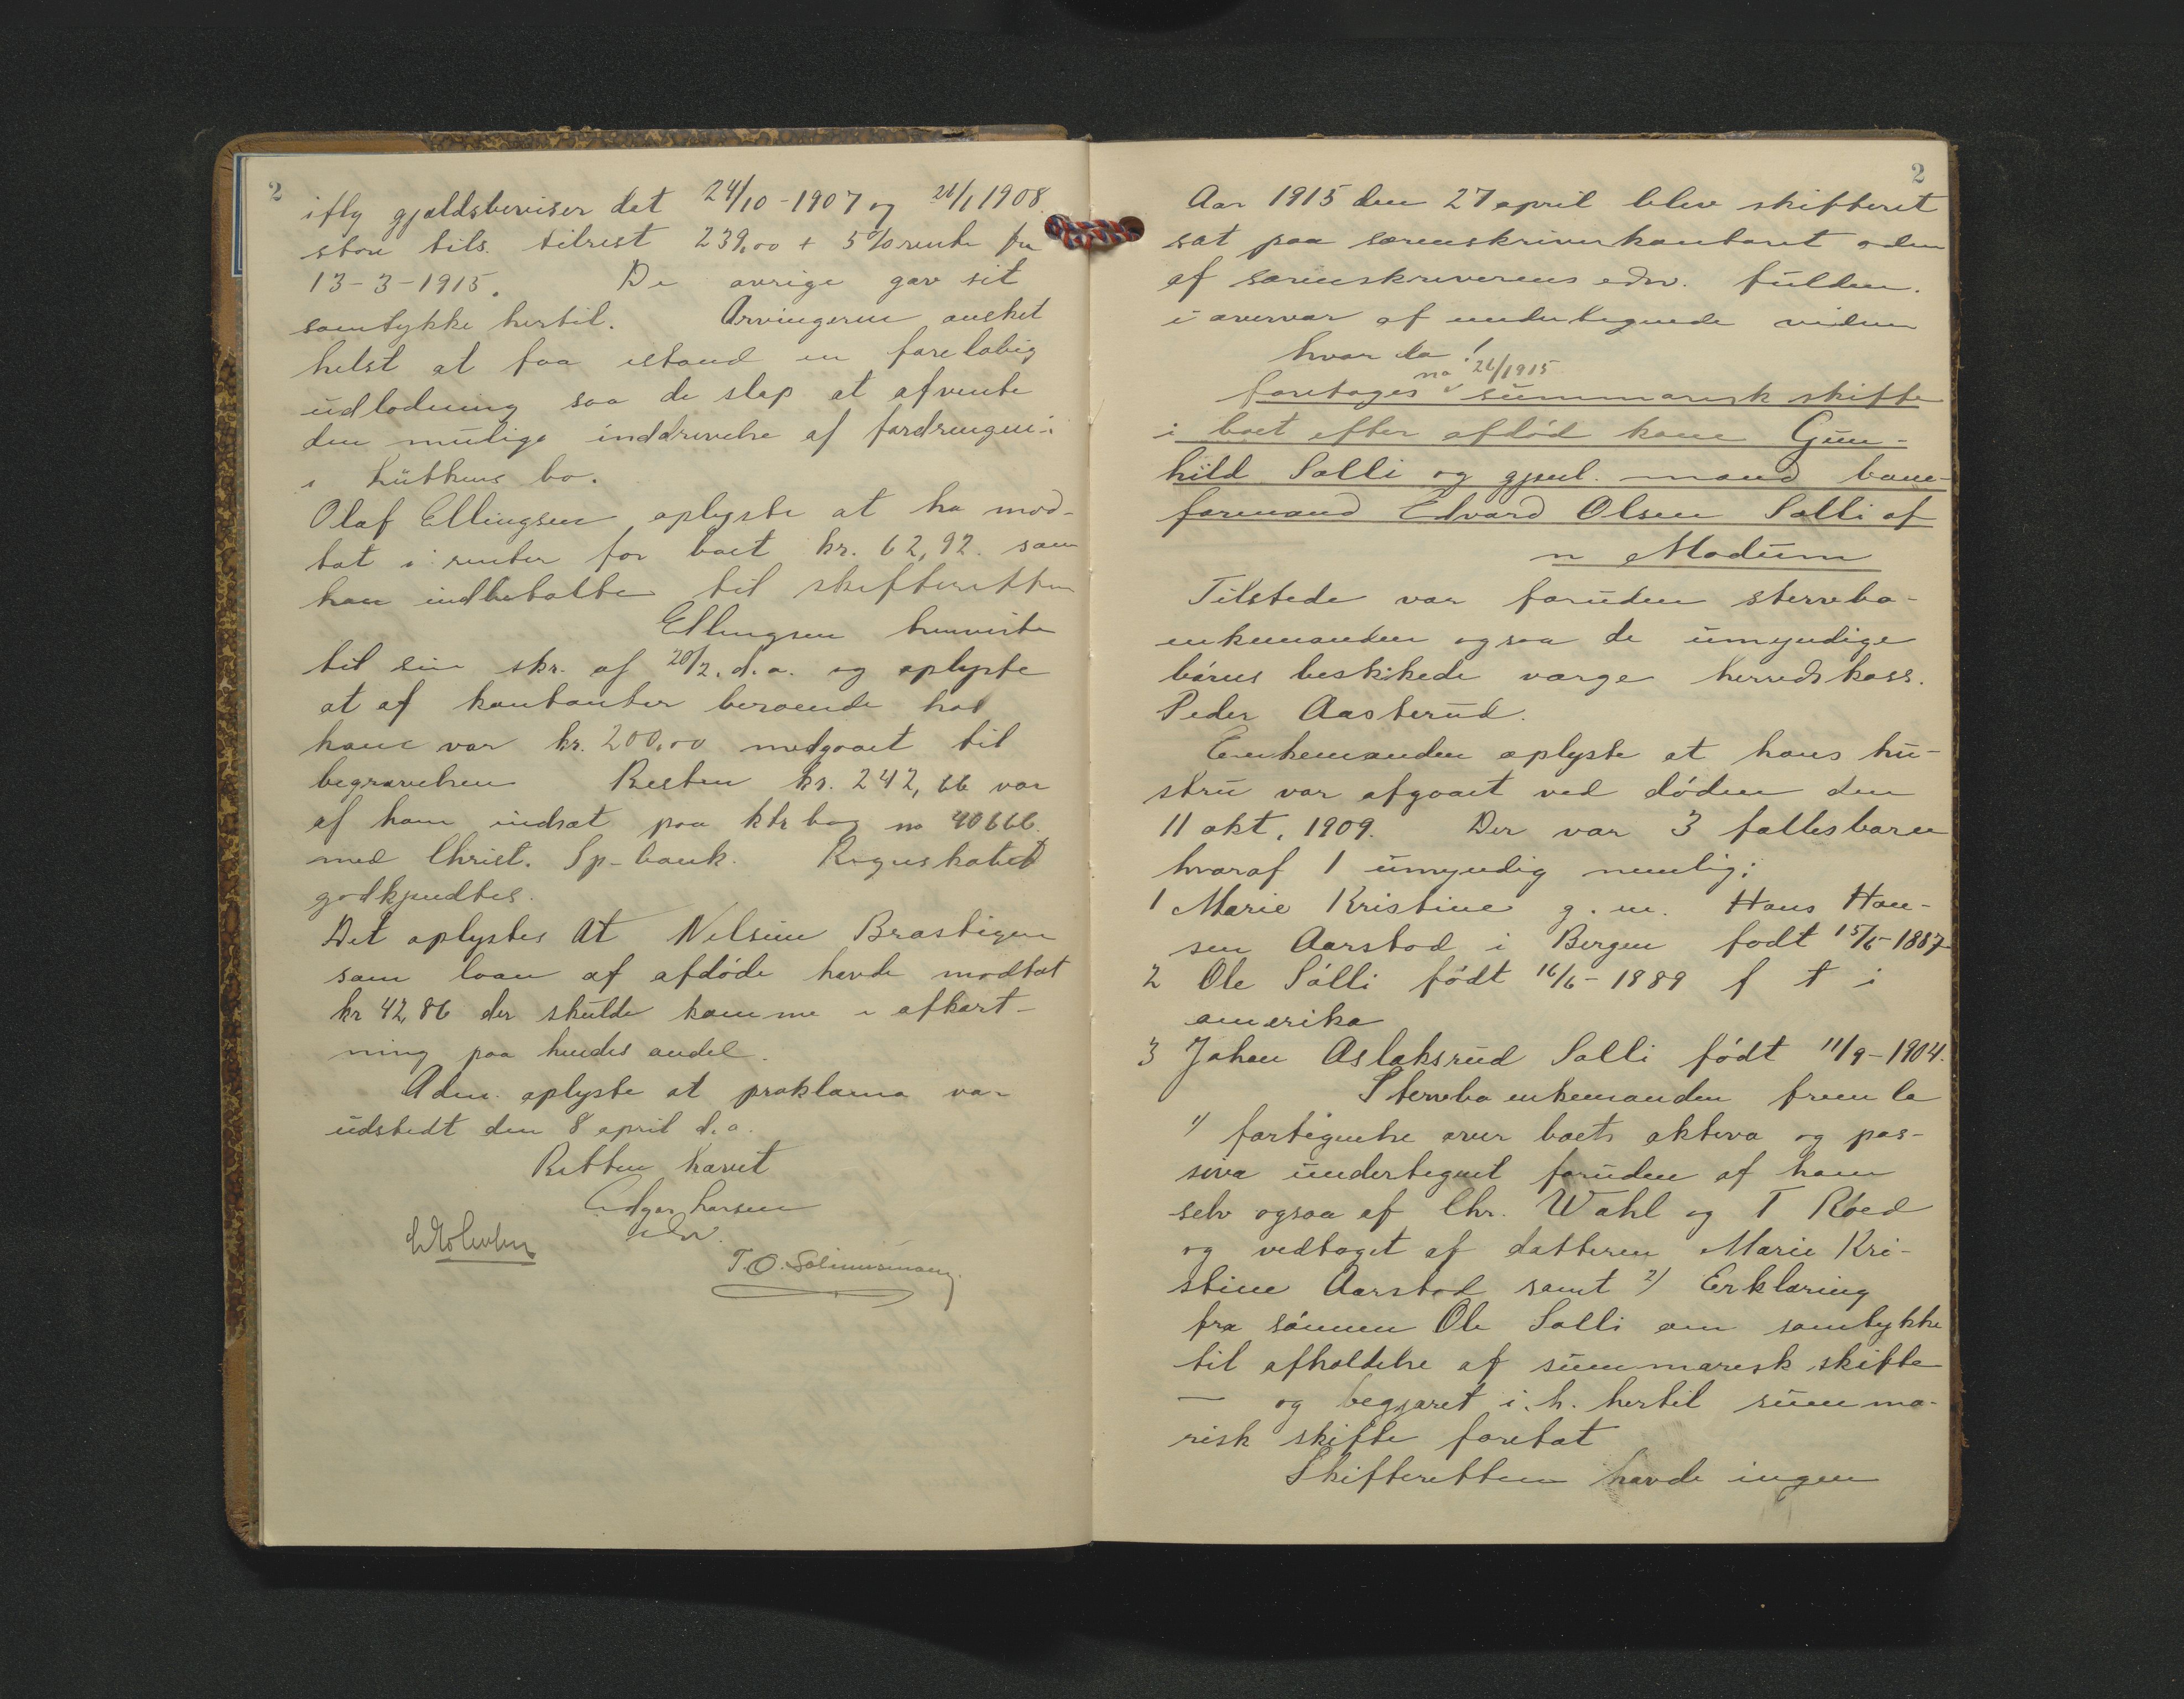 2
iflg gjældsbeviser dat 24/10-1907 og 21/1 1908
store tils. tilrest 239,00 + 5% rente fra
13-3-1915. De øvrige gav sit
samtykke hertil. Arvingerne ønsket
helst at faa istand en foreløbig
udlodning saa de slap at afvente
den mulige inddrivelse af fordringen i
i Lütkens bo.
Olaf Ellingsen oplyste at ha mod-
tat i renter for boet kr. 62,92. som
han indbetalte til skifteretten
Ellingsen henviste
til sin skr. af 20/2. d.a. og oplyste
at af kontanter beroende hos
ham var kr. 200,00 medgaaet til
begravelsen Resten kr. 242,66 var
af ham indsat paa ktr bog no 40666.
med Christ. Sp-bank. Regnskabet
godkjendtes.
Det oplystes at Nelsine Brastigen
som laan af afdøde havde modtat
kr 42,86 der skulde komme i afkort-
ning paa hendes andel.
Adm. oplyste at proklama var
udstedt den 8 april d.a.
Retten hævet
Edgar Larsen
edsv.
T.O.
2
Aar 1915 den 27 april blev skifteret
sat paa sorenskriverkontoret
af sorenskriverens edsv. fuldm.
i overvær af undertegnede vidne
hvor da!
no 26/1915
foretoges summarisk skifte
i boet efter afdød kone Gun-
hild Solli og gjenl. mand bane-
formand Edvard Olsen Solli af
n Modum
Tilstede var foruden stervbo-
enkemanden ogsaa de umyndige
børns beskikkede værge herredskass.
Peder Aasterud.
Enkemanden oplyste at hans hu-
stru var afgaaet ved døden den
11 okt. 1909. Der var 3 fællesbarn
hvoraf 1 umyndig nemlig:
1 Marie Kristine g.m. Hans Han-
sen Aarstad i Bergen født 15/5-1887
2 Ole Solli født 16/6-1889 f t i
amerika
3 Johan Aslaksrud Solli født 11/9-1904.
Stervbo enkemanden fremla
1) fortegnelse over boets aktiva og pas-
siva undertegnet foruden af ham
selv ogsaa af Chr. Wahl og T Röed
og vedtaget af datteren Marie Kri-
stine Aarstad samt 2) Erklæring
fra sønnen Ole Solli om samtykke
til afholdelse af summarisk skifte
— og begjæret i.h. hertil summa-
risk skifte foretat
Skifteretten havde ingen